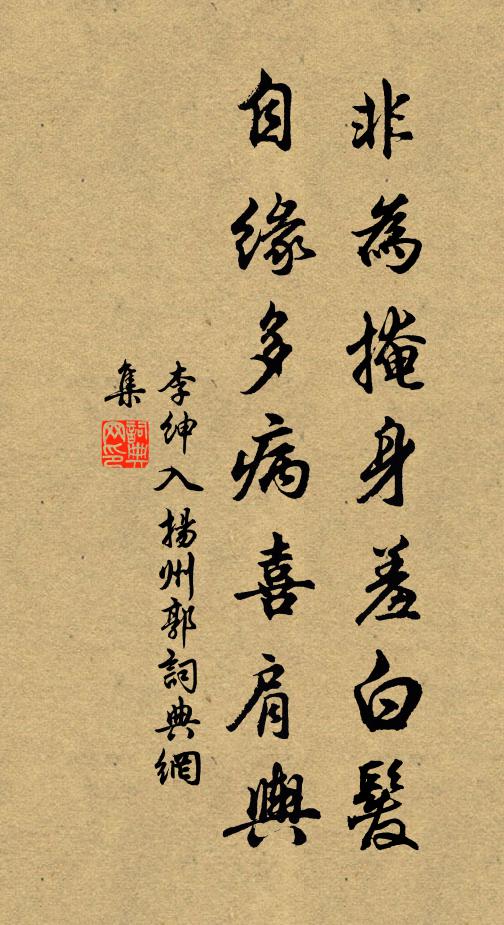 非為掩身羞白髮
自緣多病喜肩輿
李紳入揚州郭詞典網
集
詞典
网印